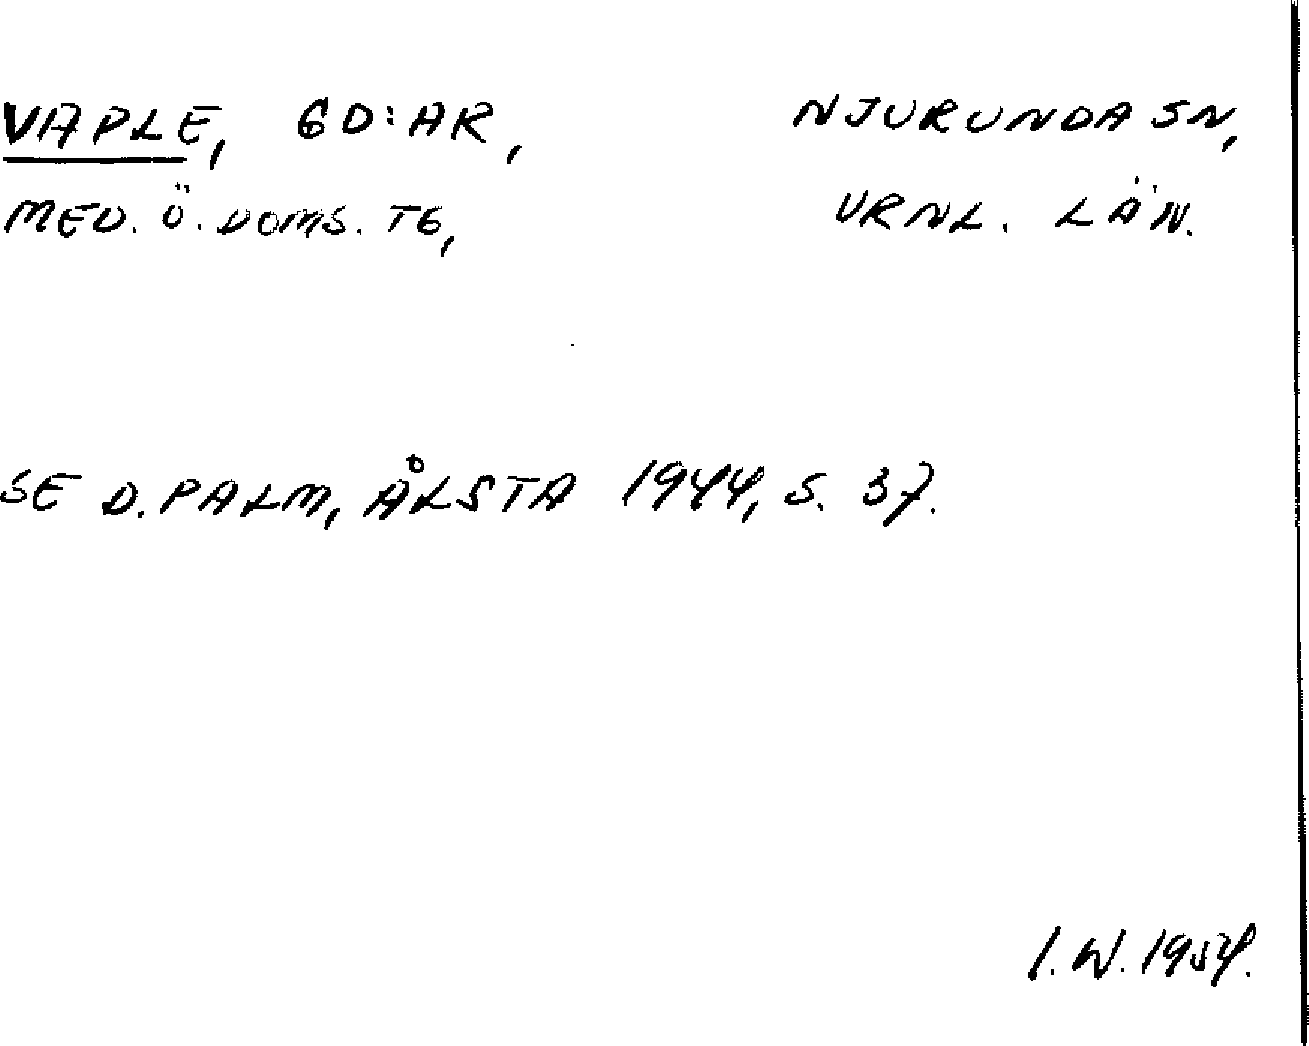 VAPLE, GD:AR, NJURUNDA SN,
MED. Ö. DOMS. TG, VRNL. LÄN.
SE D. PALM, ÅLSTA 1944, S. 37.
I. W. 1954.